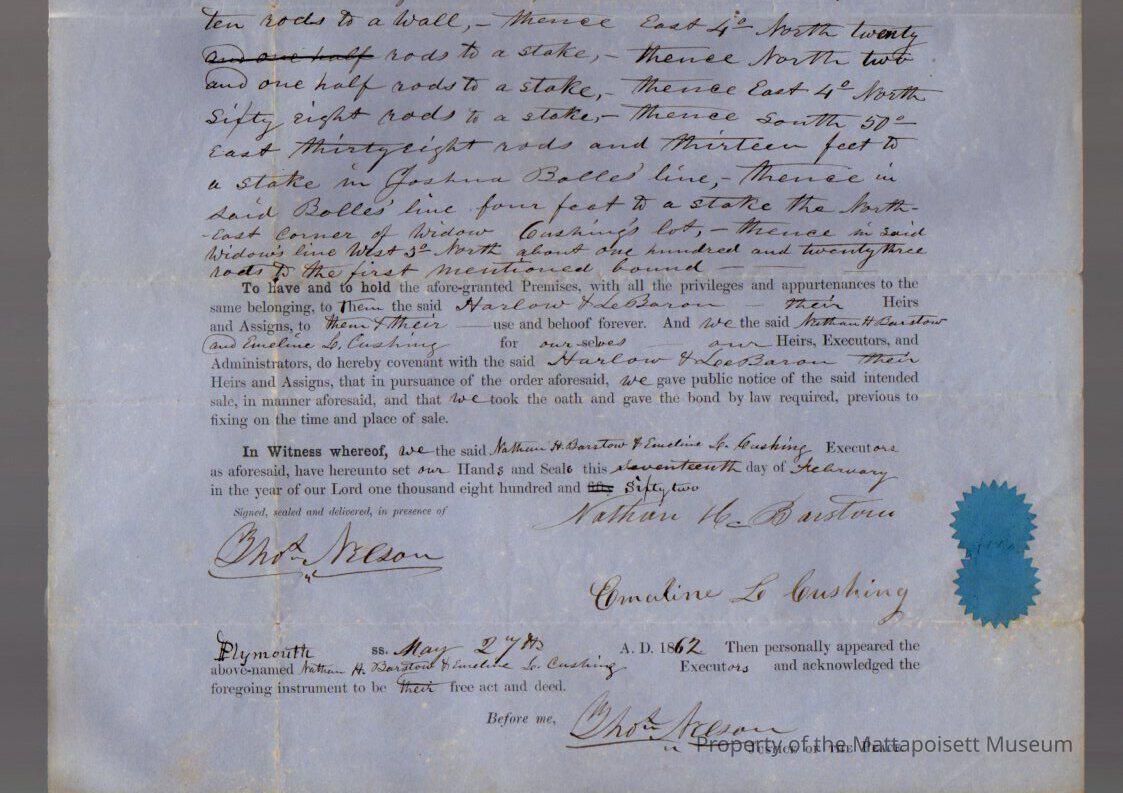 ten rods to a wall,- thence East 4° North twenty
and one half rods to a stake,- thence North two
and one half rods to a stake,- thence East 4° North
Sifty eight rods to a stake,- thence South 50°
East thirty eight rods and thirteen feet to
a stake in Joshua Bolles' line,- thence in
said Bolles' line four feet to a stake the North-
-East corner of Widow Cushing's lot,- thence in said
Widow's line West 3° North about one hundred and twenty three
rods to the first mentioned bound
To have and to hold the afore-granted Premises, with all the privileges and appurtenances to the
same belonging, to Them the said Harlow & LeBaron - their Heirs
and Assigns, to them & their use and behoof forever. And we the said Nathan H Barstow
and Emeline L. Cushing for our-selves our Heirs, Executors, and
Administrators, do hereby covenant with the said Harlow & LeeBaron their
Heirs and Assigns, that in pursuance of the order aforesaid, we gave public notice of the said intended
sale, in manner aforesaid, and that we took the oath and gave the bond by law required, previous to
fixing on the time and place of sale.
In Witness whereof, we the said Nathan H. Barstow & Emeline L. Cushing Executors
as aforesaid, have hereunto set our Hands and Seals this seventeenth day of February
in the year of our Lord one thousand eight hundred and Sixty two
Signed, sealed and delivered, in presence of
Nathan H. Barstow
Thos. Nelson
Emaline L Cushing
Plymouth ss. May 27th A. D. 1862 Then personally appeared the
above-named Nathan H. Barstow & Emeline L. Cushing Executors and acknowledged the
foregoing instrument to be their free act and deed.
Before me, Thos. Nelson
Justice of the Peace.
Property of the Mattapoisett Museum